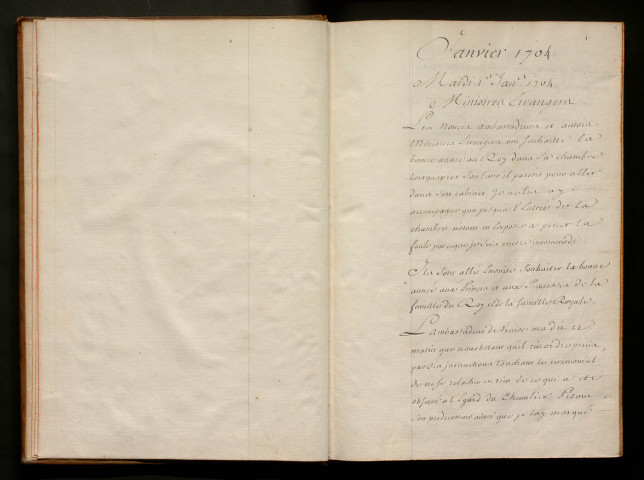 Janvier 1704
Mardi 1er Janr 1704
Ministres Etrangers
Les Nonces ambassadeurs et autres
Ministres Etrangers ont souhaitté la
bonne année au Roy dans sa chambre
lorsqu'apres son levé il passoit pour aller
dans son cabinet. Je ne les ay
accompagné que jusqu'a l'Entrée de la
chambre n'osant m'exposer a percer la
foule parceque je suis encore incommodé
Ils sont allé ensuite souhaitter la bonne
année aux Princes et aux Princesses de la
famille du Roy et de la famille Royale.
L'ambassadeur de Venise m'a dit ce
matin que nonobstant qu'il eut ordre precis
par ses instructions touchant le ceremonial
de ne se relacher en rien de ce qui a eté
observé a l'Egard du Chevalier Pisani
son predecesseur ainsi que je l'ay marqué